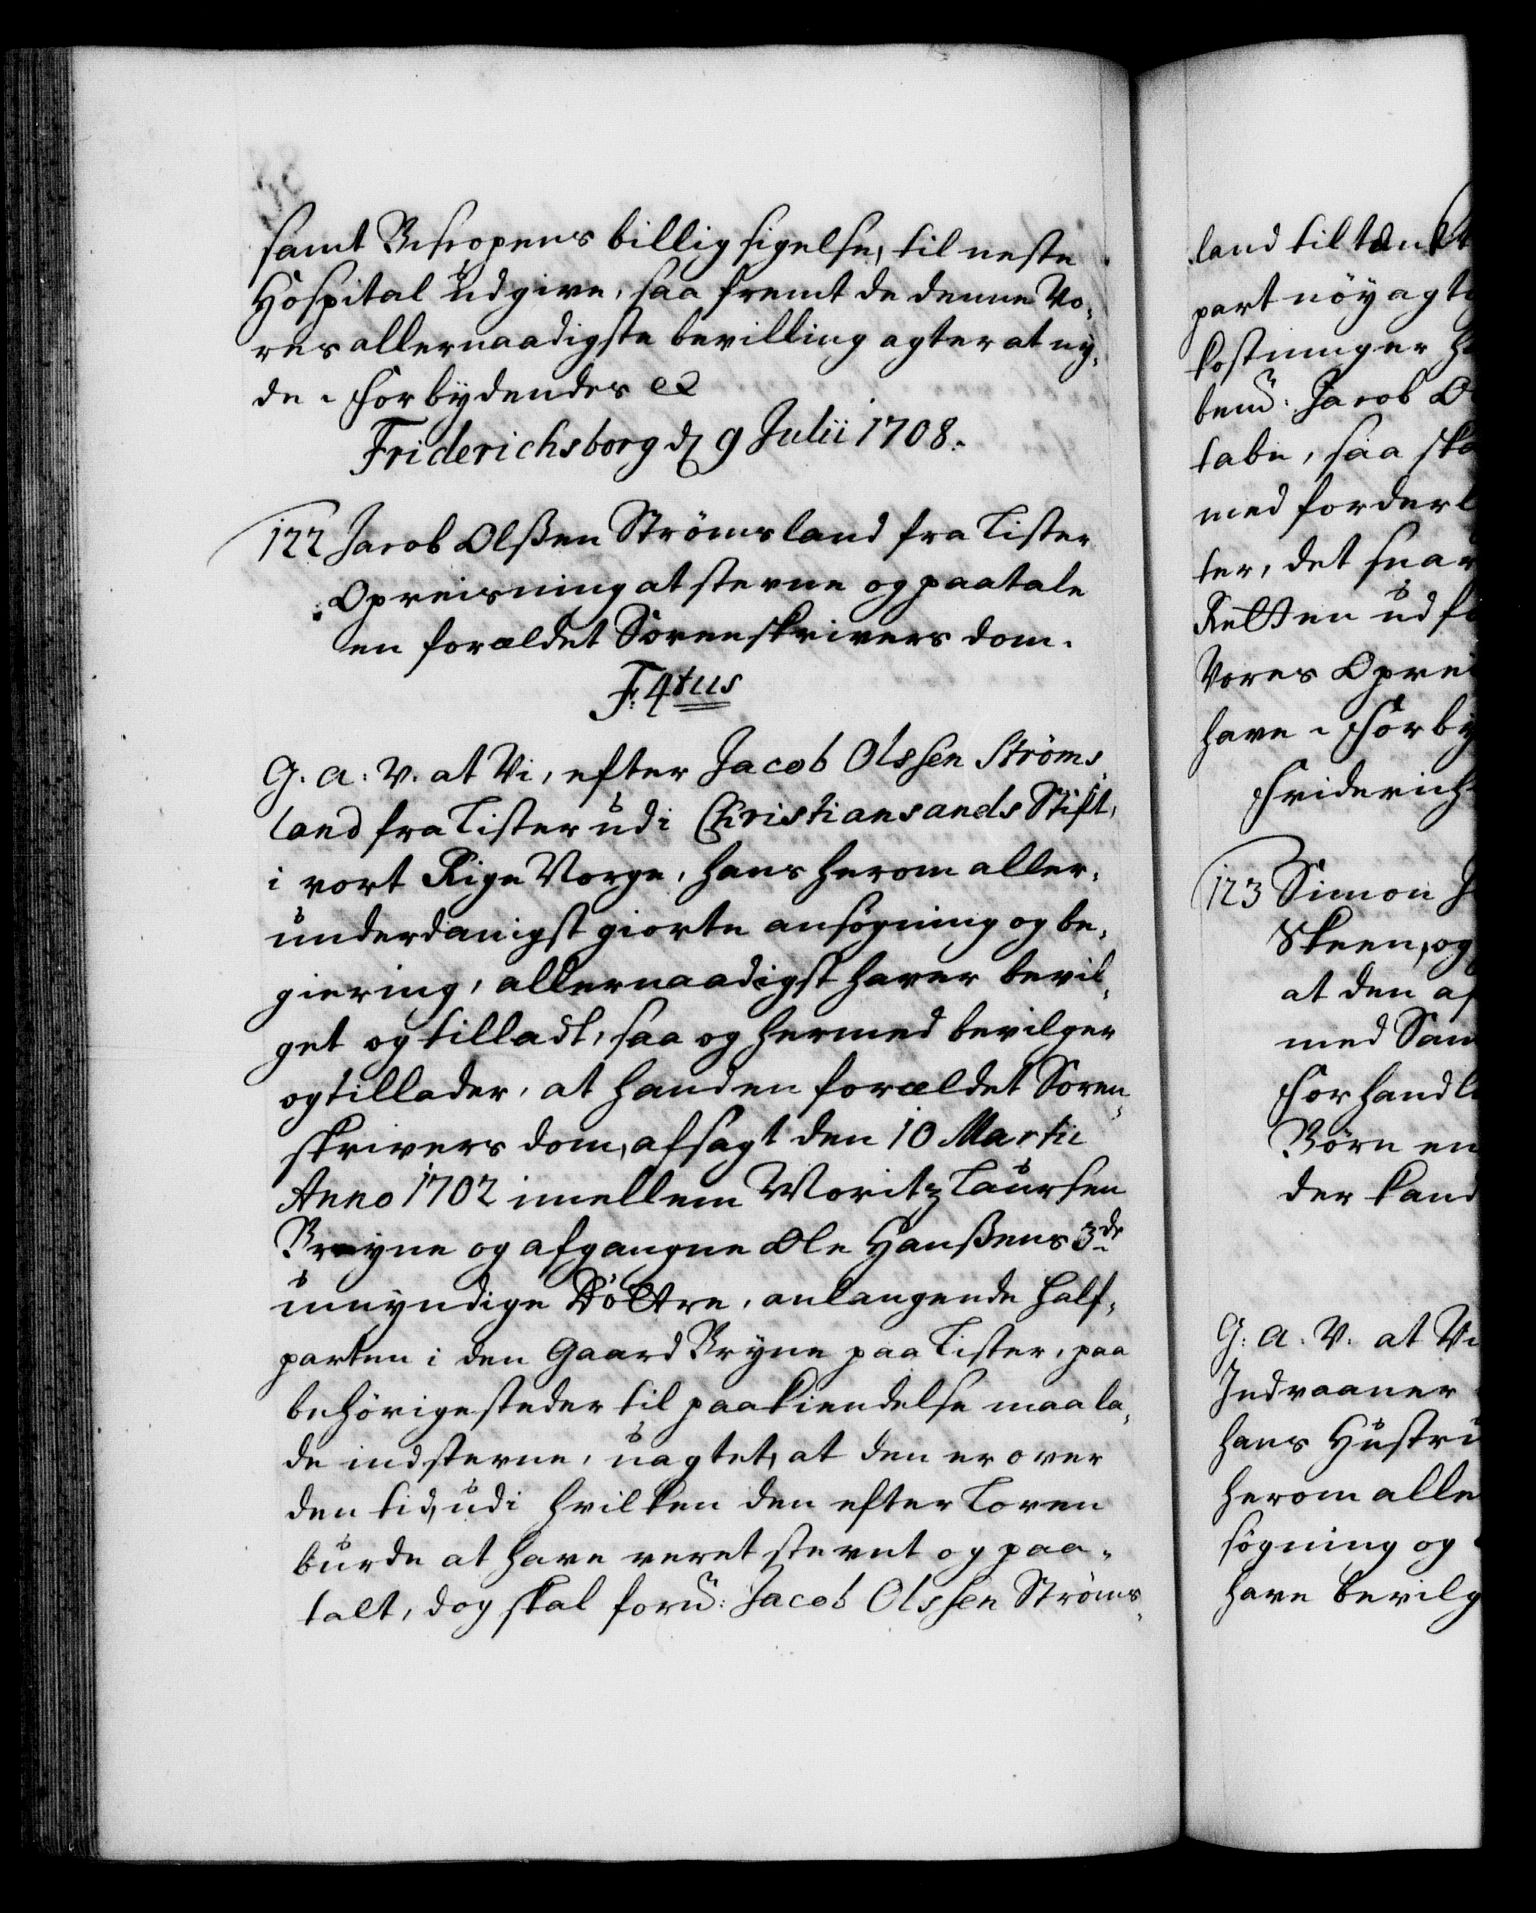 samt Bischopens billig sigelse, til neste
Hospital udgive, saa fremt de denne Vo-
res allernaadigste bevilling agter at ny-
de. Forbydendes &c
Friderichsborg d. 9 Julii 1708.
122 Jacob Olssen Strömsland fra Lister
Opreisning at stevne og paatale
en forældet Sorenskrivers dom.
F. 4tus
G. A. V. at Vi, efter Jacob Olssen Ströms-
land fra Lister udi Christiansands Stift,
i vort Rige Norge, hans herom aller-
underdanigst giorte ansøgning og be-
giering, allernaadigst haver bevil-
get og tilladt, saa og hermed bevilger
og tillader, at hand en forældet Soren-
skrivers dom, afsagt den 10 Martii
Anno 1702 imellem Moritz Laursen
Bryne og afgangne Ole Hanssens 3de
umyndige Döttre, anlangende half-
parten i den Gaard Bryne paa Lister, paa
behörige steder til paakiendelse maa la-
de indstevne, uagtet, at den er over
den tid, udi hvilken den efter Loven
burde at have veret stevnt og paa-
talt, dog skal forn: Jacob Olssen Ströms-
land tiltænkt
part nöyagt
kostninger h
bem: Jacob O
tabe, saa ska
med forderl
ter, det snar
Retten udf
Vores Oprei
have. Forby
Friderich
123 Simon J
Skeen, og
at den af
med Sam
Forhandl
Börn en
der kand
G. A. V. at Vi
Indvaaner
hans Hustru
herom alle
søgning og
have bevilg